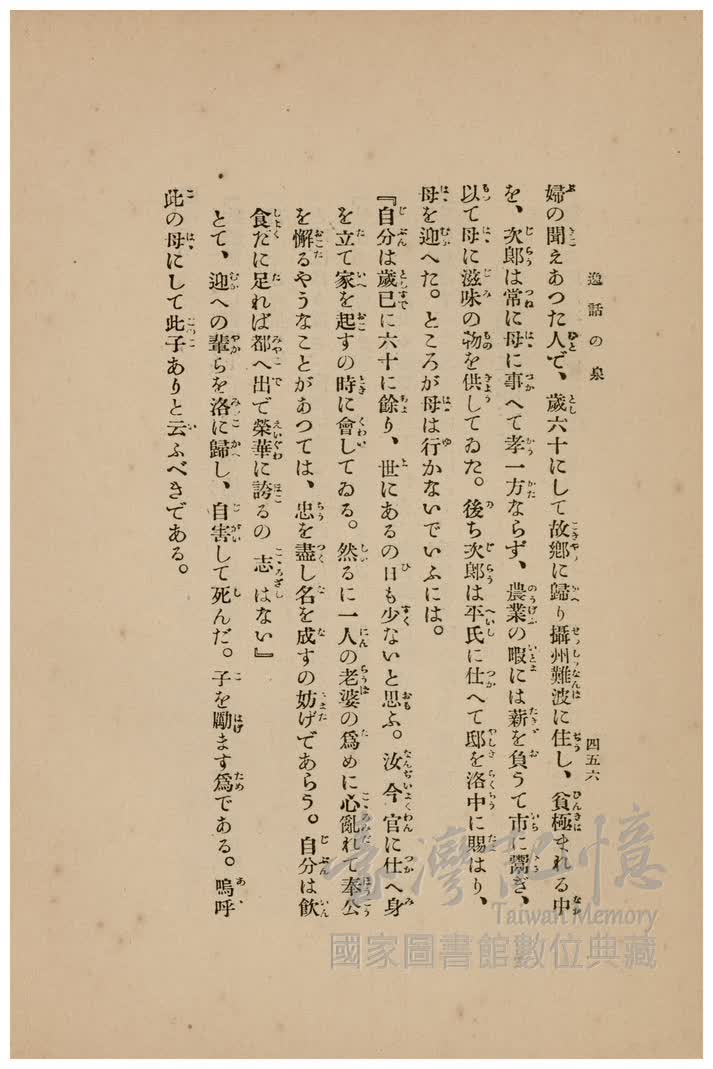 逸話の泉
四五六
婦の聞えあつた人で、歲六十にして故鄉に歸り攝州難波に住し、貧極まれる中
を、次郎は常に母に事へて孝一方ならず、農業の暇には薪を負うて市に鬻ぎ、
以て母に滋味の物を供してゐた。後ち次郎は平氏に仕へて邸を洛中に賜はり、
母を迎へた。ところが母は行かないでいふには。
『自分は歲已に六十に餘り、世にあるの日も少ないと思ふ。汝今官に仕へ身
を立て家を起すの時に會してゐる。然るに一人の老婆の爲めに心亂れて奉公
を懈るやうなことがあつては、忠を盡し名を成すの妨げであらう。自分は飮
食だに足れば都へ出で榮華に誇るの志はない』
とて、迎への輩らを洛に歸し、自害して死んだ。子を勵ます爲である。嗚呼
此の母にして此子ありと云ふべきである。
臺灣記憶
Taiwan Memory
國家圖書館數位典藏